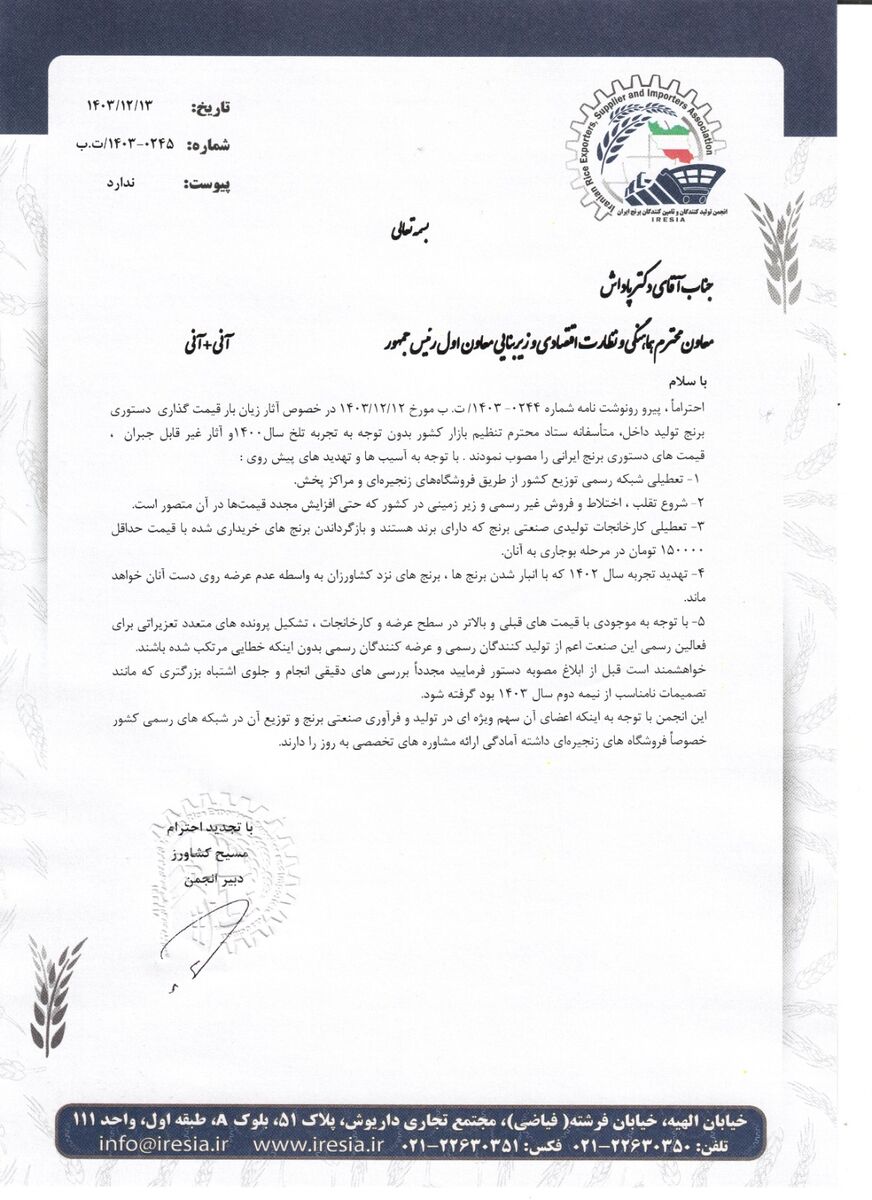 تاریخ: ۱۴۰۳/۱۲/۱۳
شماره: ۱۴۰۳-۰۲۴۵/ت.ب
پیوست: ندارد
Iranian Rice Exporters, Supplier and Importers Association
انجمن تولید کنندگان و تامین کنندگان برنج ایران
IRESIA
بسمه تعالی
جناب آقای دکتر پاداش
معاون محترم هماهنگی و نظارت اقتصادی و زیربنایی معاون اول رئیس جمهور آنی+آنی
با سلام
احتراماً ، پیرو رونوشت نامه شماره ۰۲۴۴- ۱۴۰۳/ ت. ب مورخ ۱۴۰۳/۱۲/۱۲ در خصوص آثار زیان بار قیمت گذاری دستوری
برنج تولید داخل، متأسفانه ستاد محترم تنظیم بازار کشور بدون توجه به تجربه تلخ سال۱۴۰۰و آثار غیر قابل جبران ،
قیمت های دستوری برنج ایرانی را مصوب نمودند . با توجه به آسیب ها و تهدید های پیش روی :
۱- تعطیلی شبکه رسمی توزیع کشور از طریق فروشگاه‌های زنجیره‌ای و مراکز پخش.
۲- شروع تقلب ، اختلاط و فروش غیر رسمی و زیر زمینی در کشور که حتی افزایش مجدد قیمت‌ها در آن متصور است.
۳- تعطیلی کارخانجات تولیدی صنعتی برنج که دارای برند هستند و بازگرداندن برنج های خریداری شده با قیمت حداقل
۱۵۰۰۰۰ تومان در مرحله بوجاری به آنان.
۴- تهدید تجربه سال ۱۴۰۲ که با انبار شدن برنج ها ، برنج های نزد کشاورزان به واسطه عدم عرضه روی دست آنان خواهد
ماند.
۵- با توجه به موجودی با قیمت های قبلی و بالاتر در سطح عرضه و کارخانجات ، تشکیل پرونده های متعدد تعزیراتی برای
فعالین رسمی این صنعت اعم از تولید کنندگان رسمی و عرضه کنندگان رسمی بدون اینکه خطایی مرتکب شده باشند.
خواهشمند است قبل از ابلاغ مصوبه دستور فرمایید مجدداً بررسی های دقیقی انجام و جلوی اشتباه بزرگتری که مانند
تصمیمات نامناسب از نیمه دوم سال ۱۴۰۳ بود گرفته شود.
این انجمن با توجه به اینکه اعضای آن سهم ویژه ای در تولید و فرآوری صنعتی برنج و توزیع آن در شبکه های رسمی کشور
خصوصاً فروشگاه های زنجیره‌ای داشته آمادگی ارائه مشاوره های تخصصی به روز را دارند.
با تجدید احترام
مسیح کشاورز
دبیر انجمن
خیابان الهیه، خیابان فرشته( فیاضی)، مجتمع تجاری داریوش، پلاک ۵۱، بلوک A، طبقه اول، واحد ۱۱۱
تلفن: ۲۲۶۳۰۳۵۰-۰۲۱ فکس: ۲۲۶۳۰۳۵۱-۰۲۱ www.iresia.ir info@iresia.ir